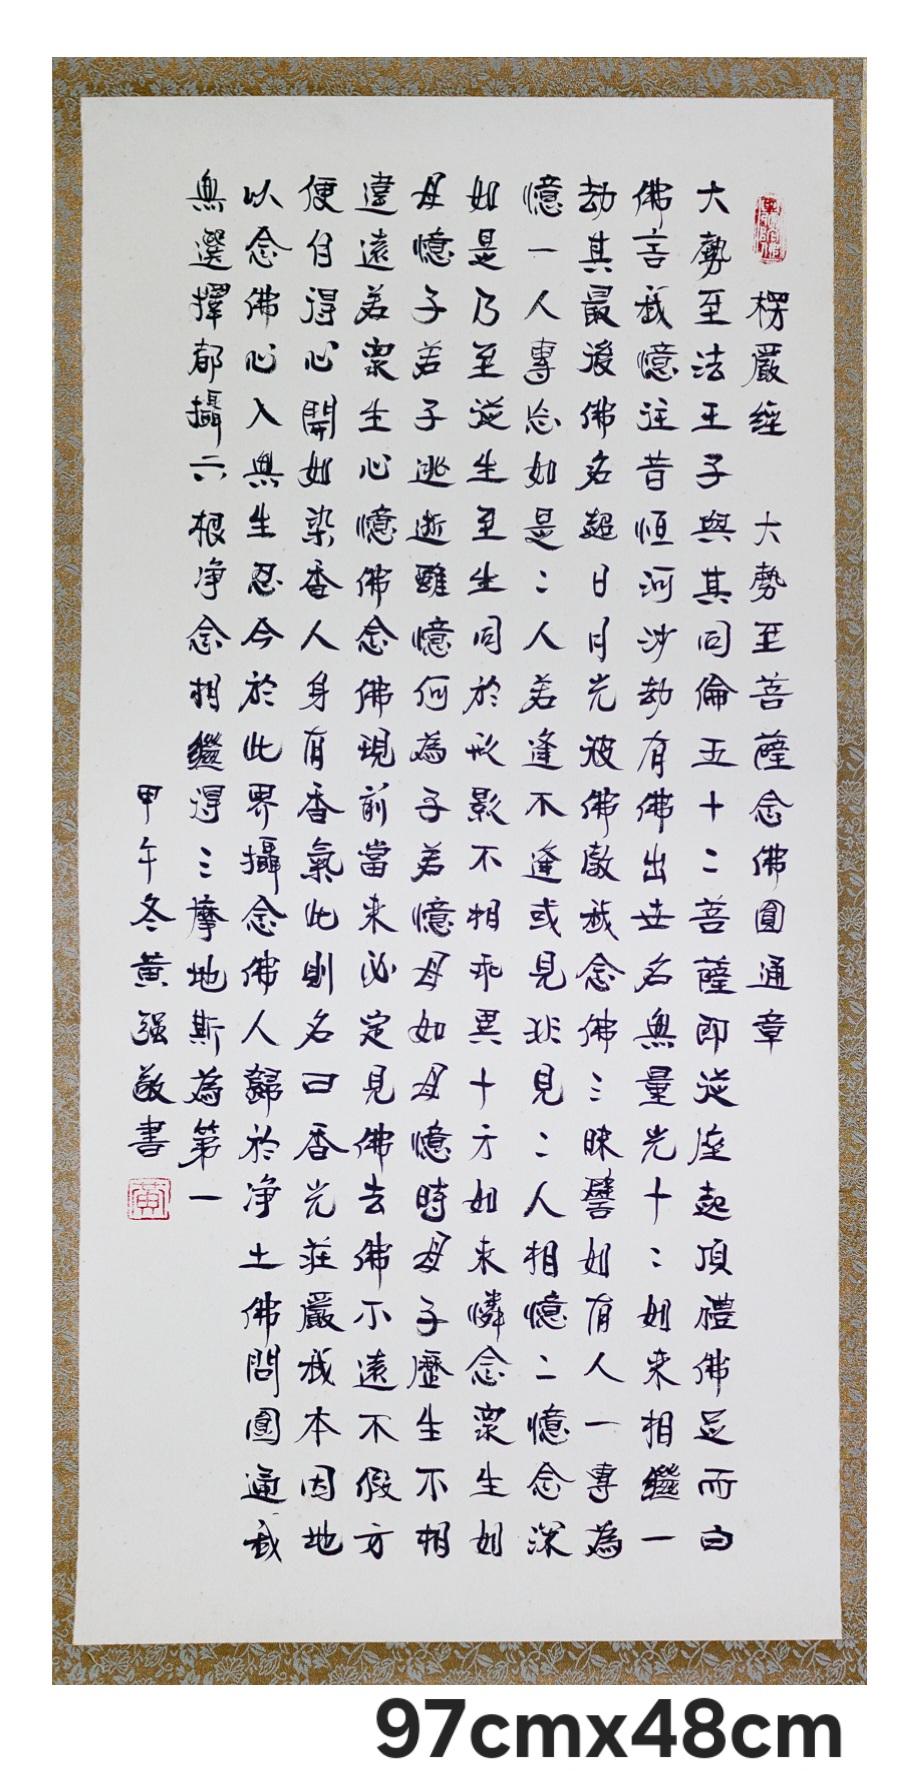 楞嚴經 大勢至菩薩念佛圓通章
大勢至法王子與其同倫五十二菩薩即從座起頂禮佛足而白
佛言我憶往昔恒河沙劫有佛出世名無量光十二如來相繼一
劫其最後佛名超日月光彼佛教我念佛三昧譬如有人一專為
憶一人專忘如是二人若逢不逢或見非見二人相憶二憶念深
如是乃至從生至生同於形影不相乖異十方如來憐念衆生如
母憶子若子逃逝雖憶何為子若憶母如母憶時母子歷生不相
違遠若衆生心憶佛念佛現前當來必定見佛去佛不遠不假方
便自得心開如染香人身有香氣此則名曰香光莊嚴我本因地
以念佛心入無生忍今於此界攝念佛人歸於净土佛問圓通我
無選擇都攝六根净念相繼得三摩地斯為第一
甲午冬黄强敬書
黄
97cmx48cm